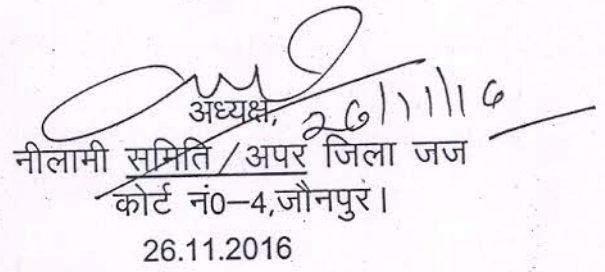 अध्यक्ष, 26/11/16
नीलामी समिति / अपर जिला जज
कोर्ट नं0–4,जौनपुर।
26.11.2016